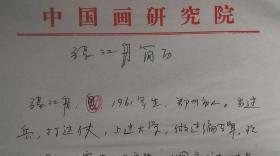 中国画研究院
张江舟简历
张江舟,男,1961年生,郑州市人。当过
兵,打过仗,上过大学,做过编辑。现